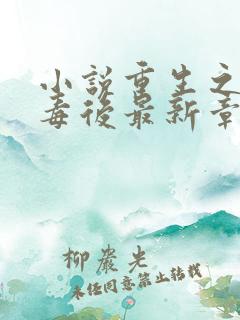 小説重生之
毒後最新章
柳巖光
未經同意禁止轉載